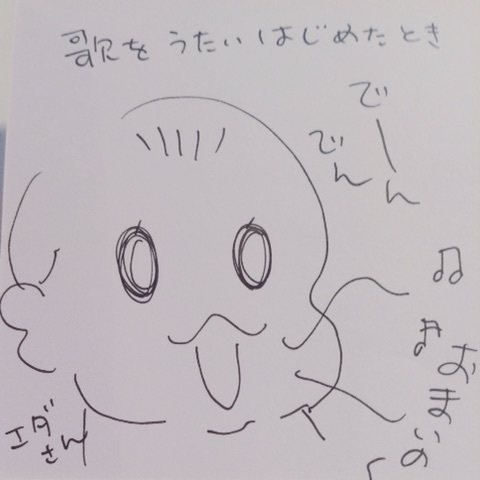 歌をうたいはじめたとき
でーん
でん
おまいの
エダさん